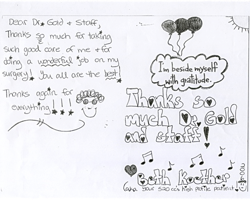 Dear Dr. Gold & Staff,
Thanks so much for taking
such good care of me & for
doing a wonderful job on my
surgery! You all are the best!
Thanks again for
everything!!!!
I'm beside myself
with gratitude.
Thanks so
much Dr. Gold
and staff!
Beth Koether
your
high profile patient